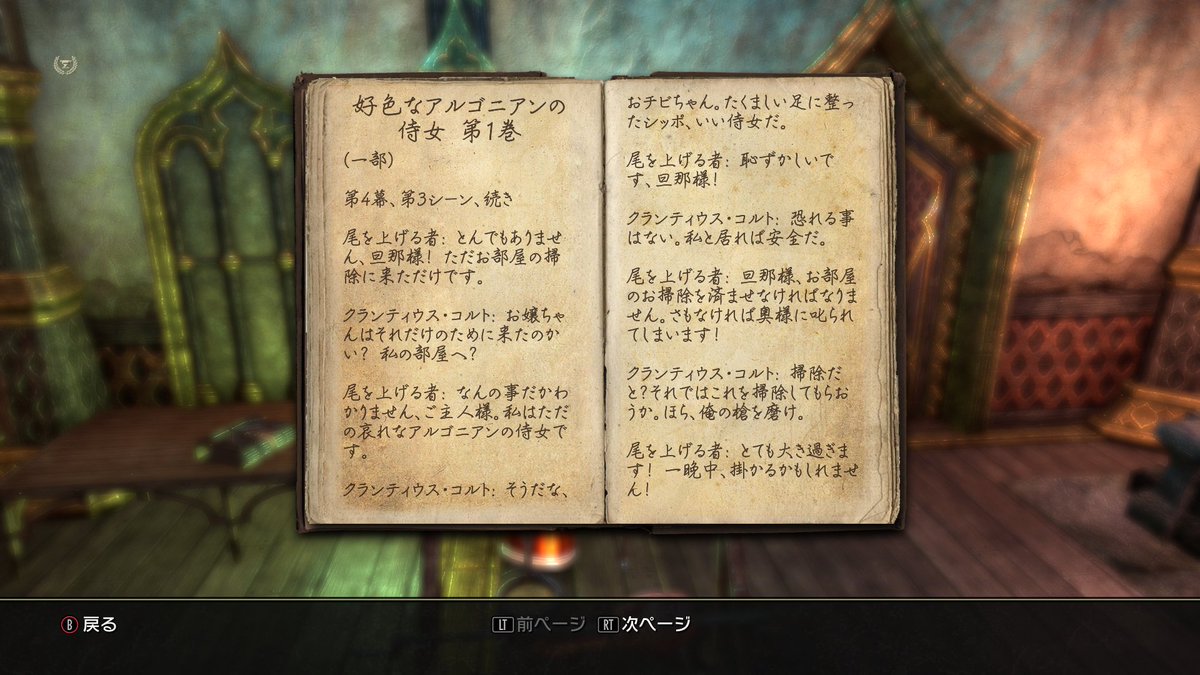 好色なアルゴニアンの
侍女 第1巻
(一部)
第4幕、第3シーン、続き
尾を上げる者: とんでもありませ
ん、旦那様! ただお部屋の掃
除に来ただけです。
クランティウス・コルト: お嬢ちゃ
んはそれだけのために来たのか
い? 私の部屋へ?
尾を上げる者: なんの事だかわ
かりません、ご主人様。私はただ
の哀れなアルゴニアンの侍女で
す。
クランティウス・コルト: そうだな、
おチビちゃん。たくましい足に整っ
たシッポ、いい侍女だ。
尾を上げる者: 恥ずかしいで
す、旦那様!
クランティウス・コルト: 恐れる事
はない。私と居れば安全だ。
尾を上げる者: 旦那様、お部屋
のお掃除を済ませなければなりま
せん。さもなければ奥様に叱られ
てしまいます!
クランティウス・コルト: 掃除だ
と?それではこれを掃除してもらお
うか。ほら、俺の槍を磨け。
尾を上げる者: とても大き過ぎま
す! 一晩中、掛かるかもしれませ
ん!
B 戻る
LT 前ページ RT 次ページ